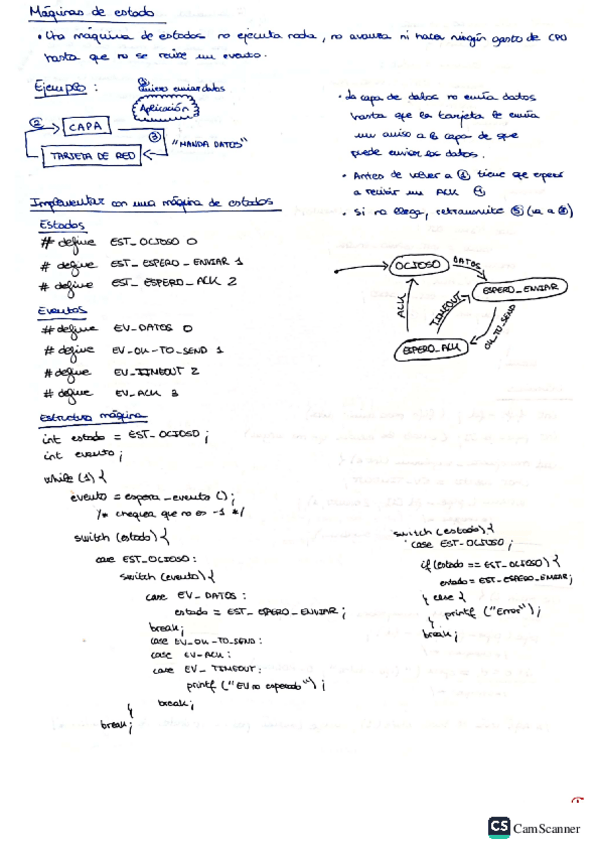 Máquinas de estado
• Una máquina de estados no ejecuta nada, no avanza ni hace ningún gasto de CPU
hasta que no se recibe un evento.
Ejemplo:
① Quiero enviar datos
Aplicación
②
CAPA
③
"MANDA DATOS"
TARJETA DE RED
• La capa de datos no envía datos
hasta que la tarjeta le envía
un aviso a la capa de que
puede enviar los datos.
• Antes de volver a ① tiene que esperar
a recibir un ACK ④
• Si no llega, retransmite ⑤ (va a ②)
Implementar con una máquina de estados
Estados
# define EST_OCIOSO 0
# define EST_ESPERO_ENVIAR 1
# define EST_ESPERO_ACK 2
OCIOSO
DATOS
ESPERO_ENVIAR
ACK
TIMEOUT
OK_TO_SEND
ESPERO_ACK
Eventos
# define EV_DATOS 0
# define EV_OK_TO_SEND 1
# define EV_TIMEOUT 2
# define EV_ACK 3
Estructura máquina
int estado = EST_OCIOSO;
int evento;
while (1) {
evento = espera_evento ();
/* chequea que no es -1 */
switch (estado) {
case EST_OCIOSO:
switch (evento) {
case EV_DATOS:
estado = EST_ESPERO_ENVIAR;
break;
case EV_OK_TO_SEND:
case EV_ACK:
case EV_TIMEOUT:
printf ("EV no esperado");
break;
}
break;
switch (estado) {
case EST_OCIOSO;
if (estado == EST_OCIOSO) {
estado = EST_ESPERO_ENVIAR;
} else {
printf ("Error");
}
break;
CS CamScanner